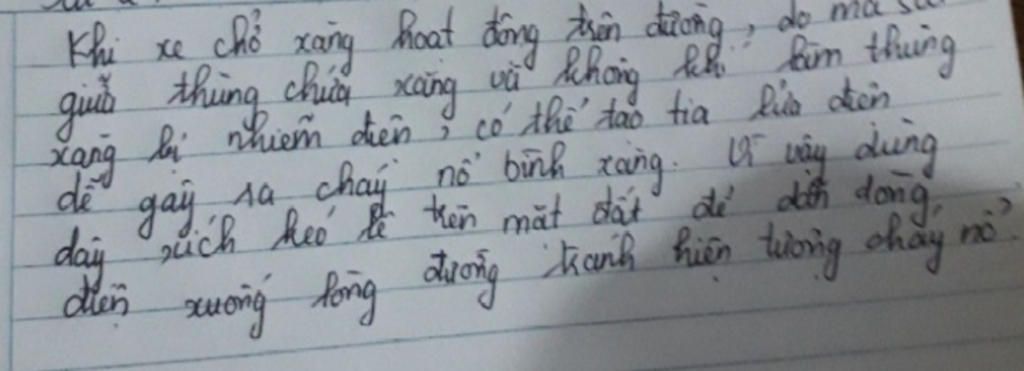 Khi xe chở xăng hoạt động trên đường, do ma
giữa thùng chứa xăng và không khí làm thùng
xăng bị nhiễm điện, có thể tạo tia lửa điện
dễ gây ra cháy nổ bình xăng. Vì vậy dùng
dây xích kéo lê trên mặt đất để dẫn dòng
điện xuống lòng đường tránh hiện tượng cháy nổ.